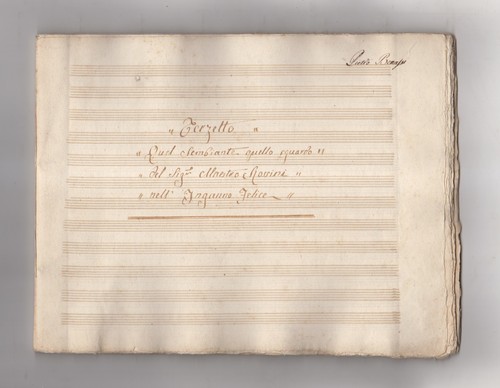 „ Terzetto „
„ Quel Sembiante, quello sguardo „
„ Del Sig.r Maestro Rossini „
„ nell' Inganno Felice „